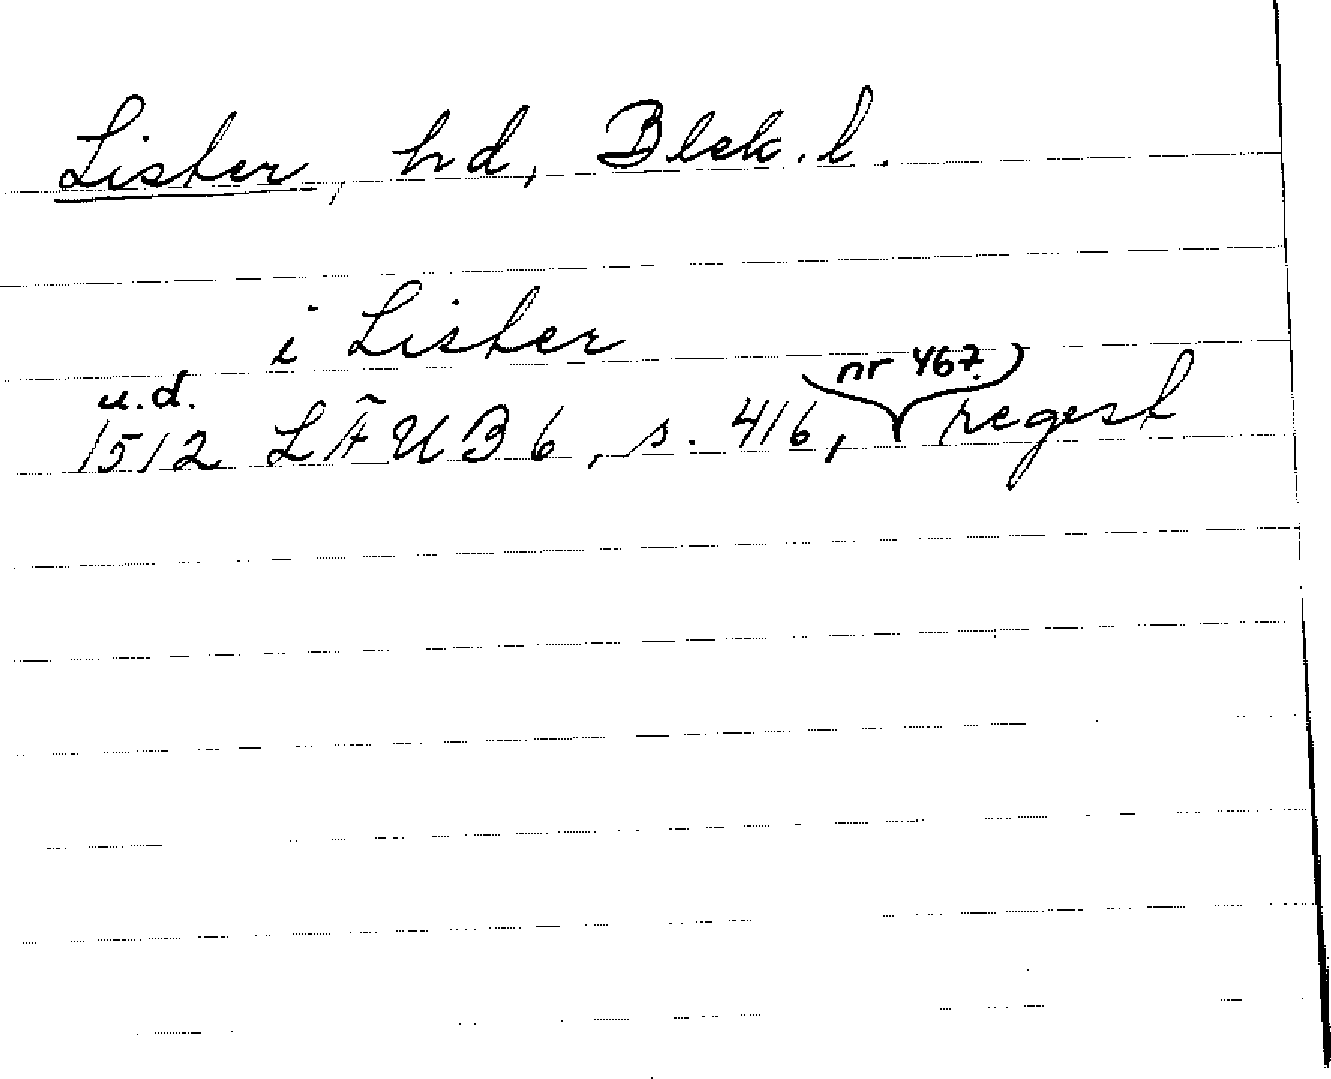 Lister, hd, Blek. l.
i Lister
u.d.
1512 LÄUB 6, s. 416, nr 467. regest